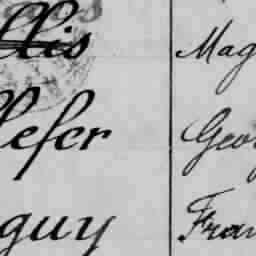 llis Mag
lefer Geor
guy Fran